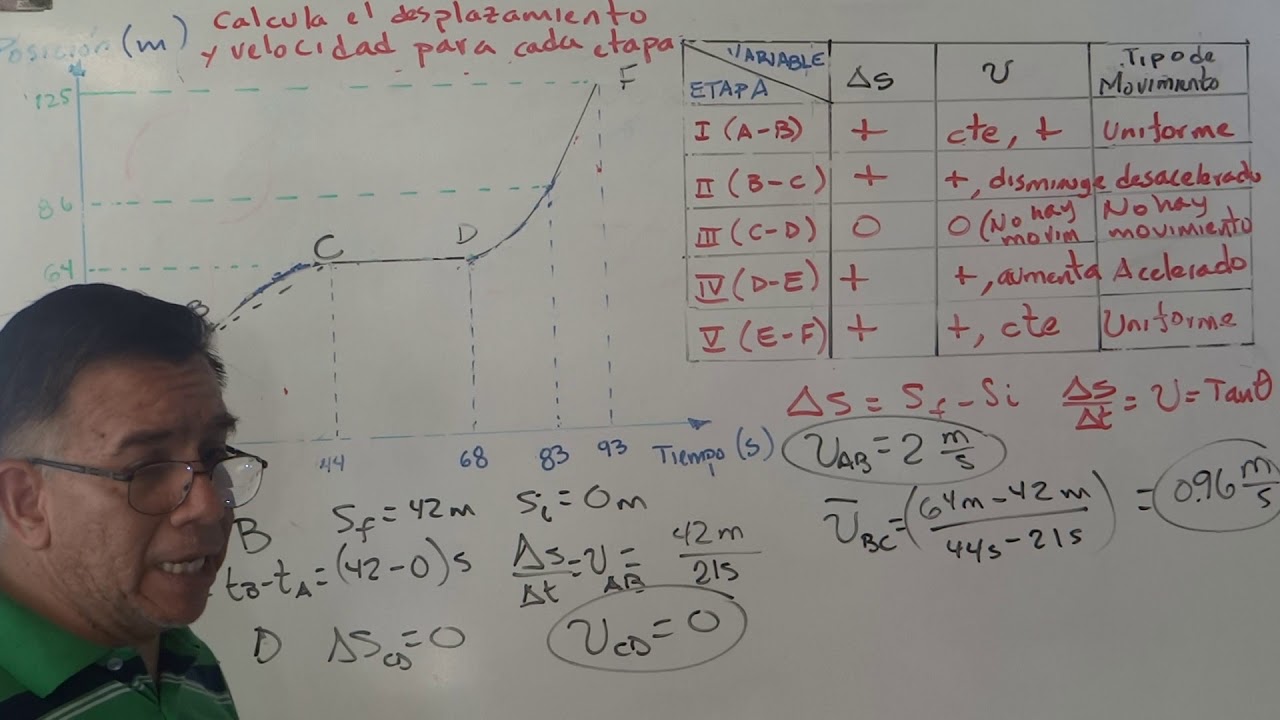 Calcula el desplazamiento
Posición (m) y velocidad para cada etapa
125
86
64
B
C
D
F
44
68
83
93
Tiempo (s)
VARIABLE
ETAPA
ΔS
v
Tipo de
Movimiento
I (A-B) + cte, + Uniforme
II (B-C) + +, disminuye desacelerado
III (C-D) 0 0 (No hay movim No hay movimiento
IV (D-E) + +, aumenta Acelerado
V (E-F) + +, cte Uniforme
ΔS = Sf - Si ΔS/Δt = v = Tanθ
vAB = 2 m/s
v̄BC = (64m - 42m / 44s - 21s) = 0.96 m/s
B Sf = 42m Si = 0m
tB - tA = (42 - 0) s ΔS/Δt = vAB = 42m/21s
D ΔSCD = 0 vCD = 0